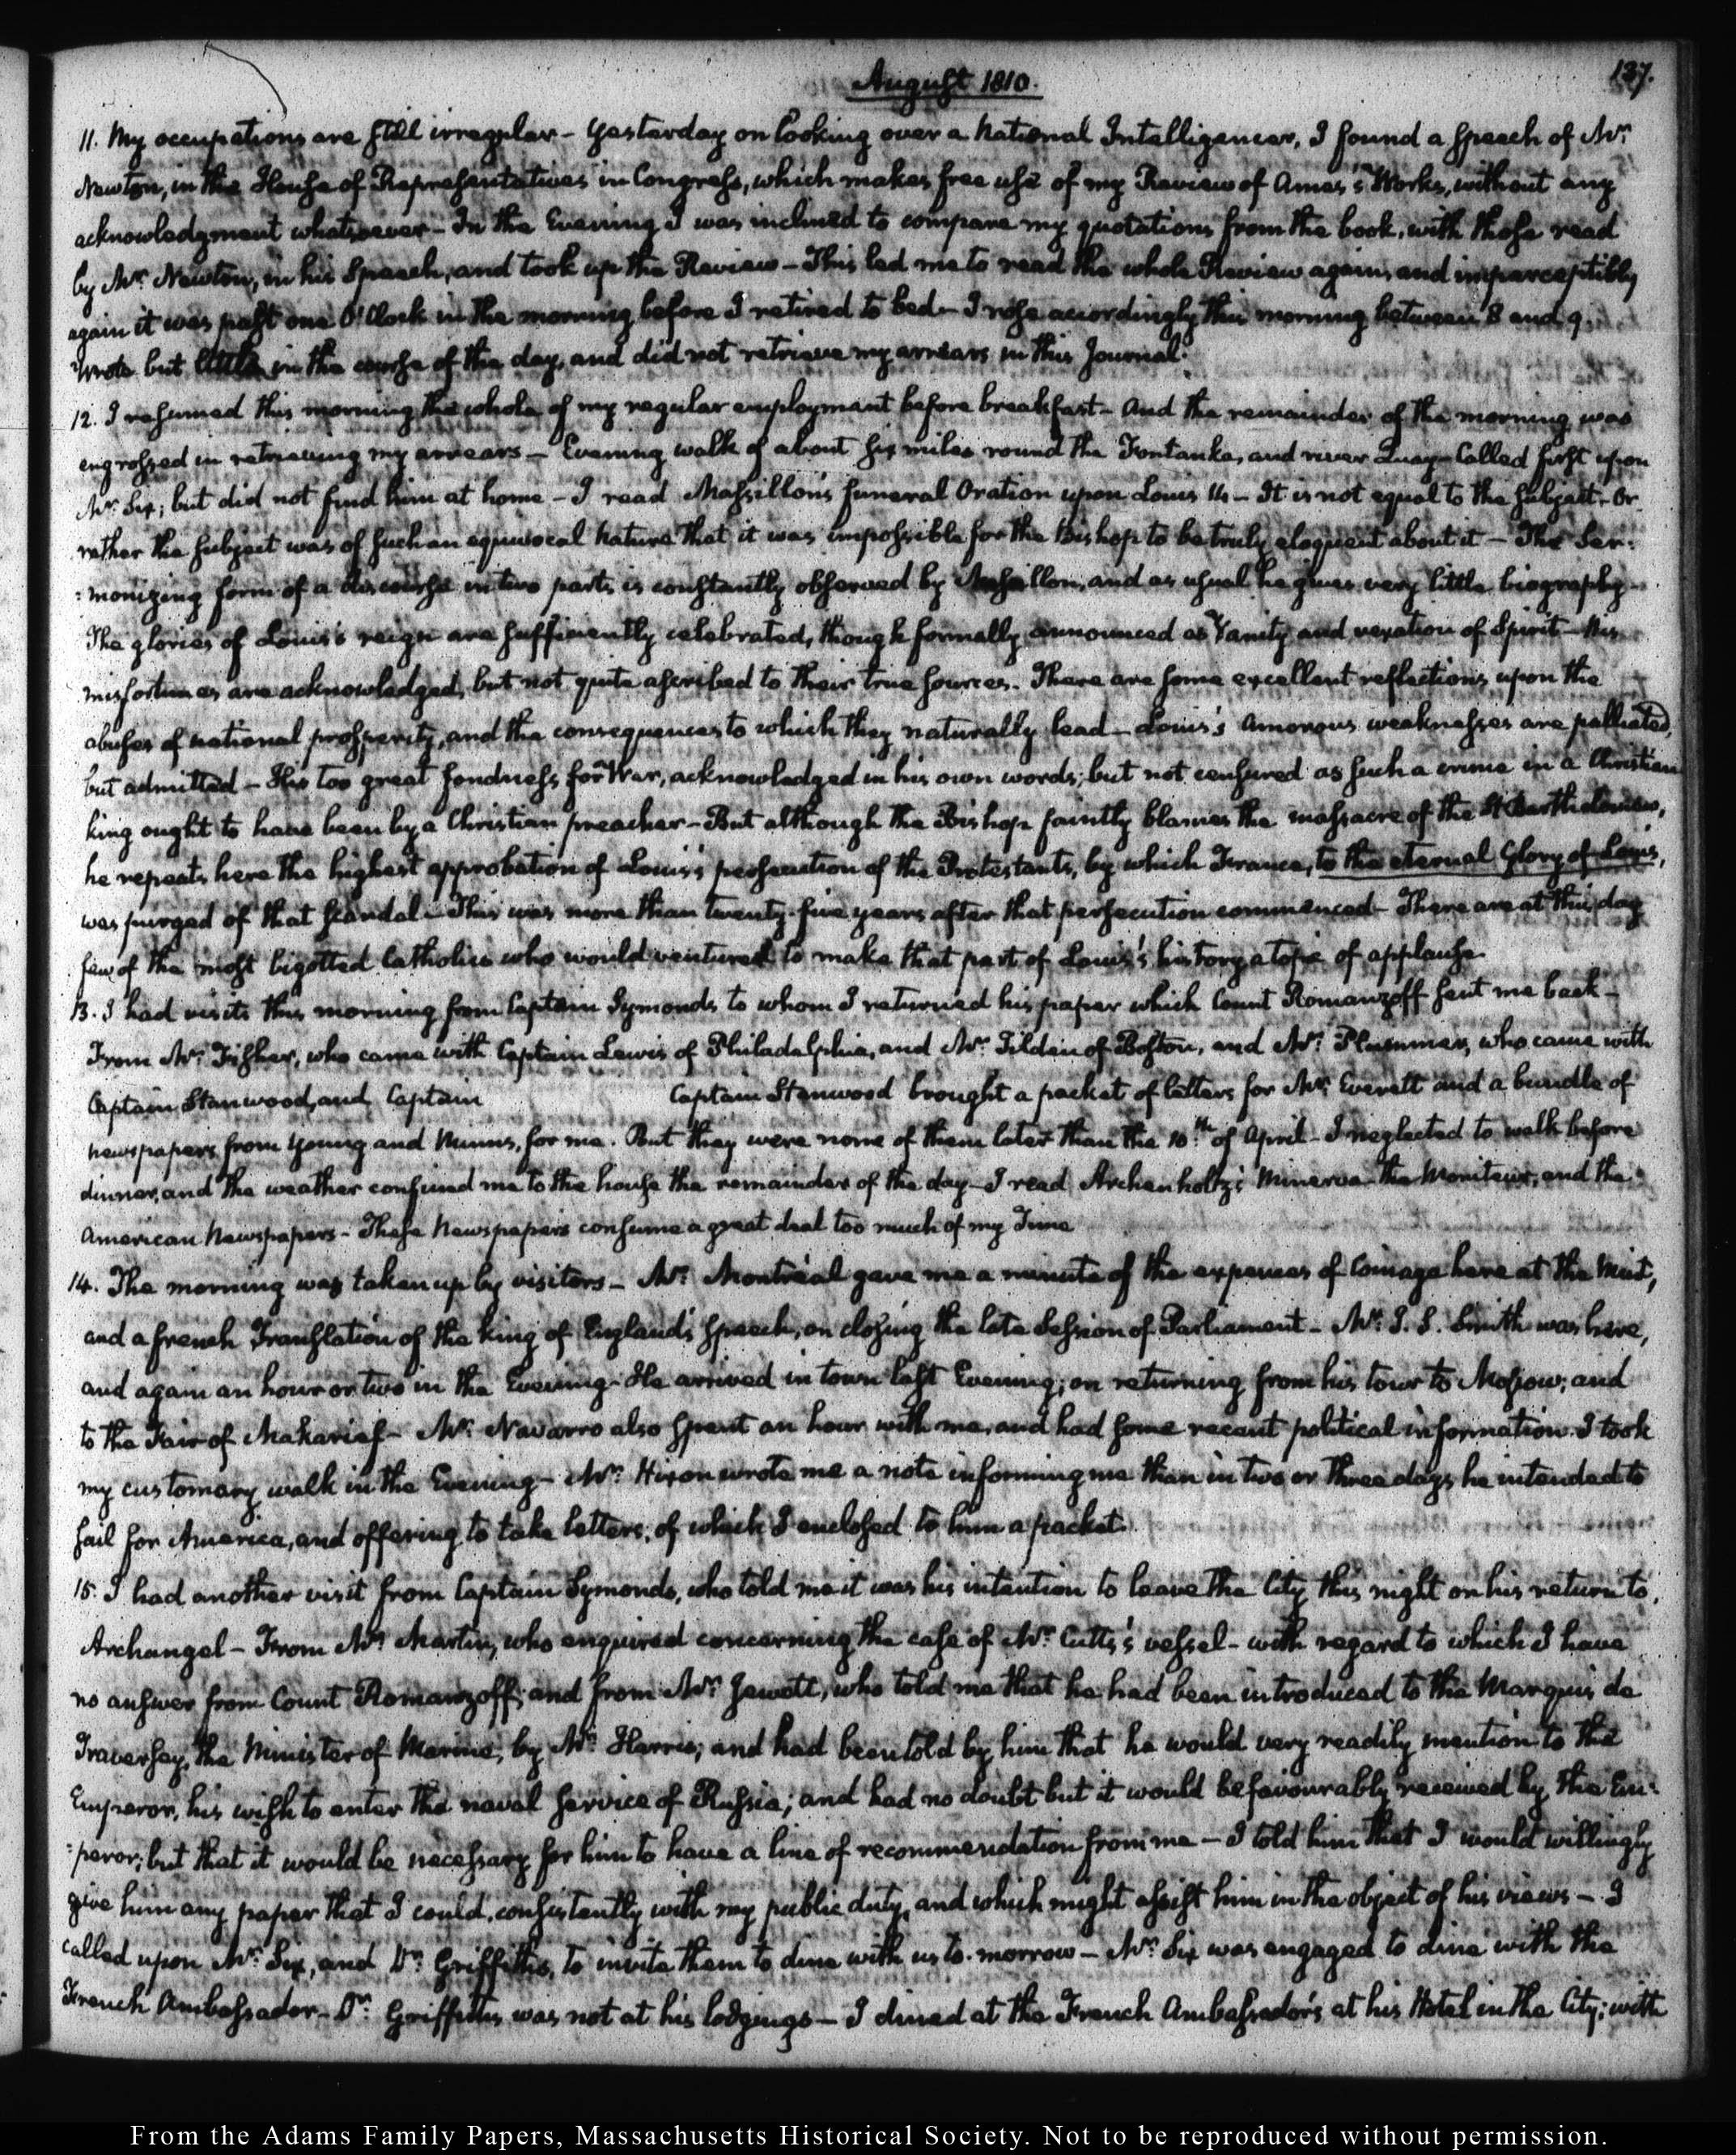 August 1810.
137.
11. My occupations are still irregular - Yesterday on looking over a National Intelligencer, I found a speech of Mr.
Newton, in the House of Representatives in Congress, which makes free use of my Review of Ames's Works, without any
acknowledgment whatsoever - In the Evening I was inclined to compare my quotations from the book, with those read
by Mr. Newton, in his Speech, and took up the Review - This led me to read the whole Review again, and imperceptibly
again it was past one O'Clock in the morning before I retired to bed - I rose accordingly this morning between 8 and 9.
Wrote but little in the course of the day, and did not retrieve my arrears in this Journal.
12. I resumed this morning the whole of my regular employment before breakfast - And the remainder of the morning was
engrossed in retrieving my arrears - Evening walk of about six miles round the Fontanka, and river Quay - Called first upon
Mr. Six; but did not find him at home - I read Massillon's funeral Oration upon Louis 14 - It is not equal to the subject - Or
rather the subject was of such an equivocal nature that it was impossible for the Bishop to be truly eloquent about it - The Ser-
:monizing form of a discourse in two parts is constantly observed by Massillon, and as usual he gives very little biography -
The glories of Louis's reign are sufficiently celebrated, though formally announced as Vanity and vexation of Spirit - His
misfortunes are acknowledged, but not quite ascribed to their true sources. There are some excellent reflections upon the
abuses of national prosperity, and the consequences to which they naturally lead - Louis's amorous weaknesses are palliated,
but admitted - His too great fondness for War, acknowledged in his own words; but not censured as such a crime in a Christian
king ought to have been by a Christian preacher - But although the Bishop faintly blames the massacre of the St. Bartholomew,
he repeats here the highest approbation of Louis's persecution of the Protestants, by which France, to the eternal Glory of Louis,
was purged of that scandal - This was more than twenty-five years after that persecution commenced - There are at this day
few of the most bigotted Catholics who would ventured to make that part of Louis's history a topic of applause.
13. I had visits this morning from Captain Symonds to whom I returned his paper which Count Romanzoff sent me back -
From Mr. Fisher, who came with Captain Lewis of Philadelphia, and Mr. Tilden of Boston, and Mr. Plummer, who came with
Captain Stanwood, and Captain Captain Stanwood brought a packet of letters for Mr. Everett and a bundle of
newspapers from Young and Minns, for me. But they were none of them later than the 10th. of April - I neglected to walk before
dinner, and the weather confined me to the house the remainder of the day - I read Archenholtz's Minerva - the Moniteur, and the
American Newspapers - These Newspapers consume a great deal too much of my Time
14. The morning was taken up by visitors - Mr. Montréal gave me a minute of the expences of Coinage here at the Mint,
and a french Translation of the king of England's speech, on closing the late Session of Parliament - Mr. J. S. Smith was here,
and again an hour or two in the Evening - He arrived in town last Evening; on returning from his tour to Moscow; and
to the Fair of Makarief - Mr. Navarro also spent an hour with me, and had some recent political information. I took
my customary walk in the Evening - Mr. Hixon wrote me a note informing me than in two or three days he intended to
sail for America, and offering to take letters; of which I enclosed to him a packet.
15. I had another visit from Captain Symonds, who told me it was his intention to leave the City this night on his return to
Archangel - From Mr. Martin, who enquired concerning the case of Mr. Cutts's vessel - with regard to which I have
no answer from Count Romanzoff; and from Mr. Jewett, who told me that he had been introduced to the Marquis de
Traversay, the Minister of Marine, by Mr. Harris; and had been told by him that he would very readily mention to the
Emperor, his wish to enter the naval service of Russia; and had no doubt but it would be favourably received by the Em-
:peror; but that it would be necessary for him to have a line of recommendation from me - I told him that I would willingly
give him any paper that I could, consistently with my public duty, and which might assist him in the object of his views - I
called upon Mr. Six, and Dr. Griffiths, to invite them to dine with us to-morrow - Mr. Six was engaged to dine with the
French Ambassador - Dr. Griffiths was not at his lodgings - I dined at the French Ambassador's at his Hotel in the City; with
From the Adams Family Papers, Massachusetts Historical Society. Not to be reproduced without permission.